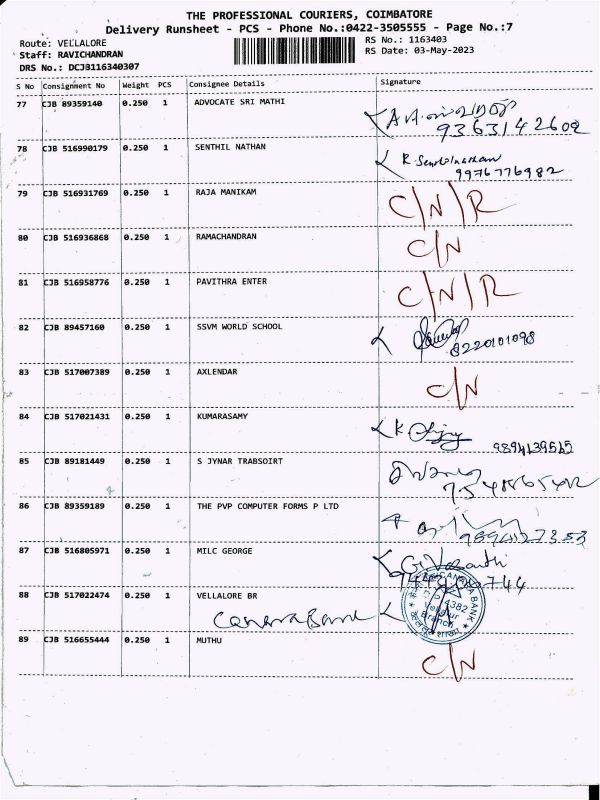 THE PROFESSIONAL COURIERS, COIMBATORE
Delivery Runsheet - PCS - Phone No.:0422-3505555 - Page No.:7
Route: VELLALORE
RS No.: 1163403
Staff: RAVICHANDRAN
RS Date: 03-May-2023
DRS No.: DCJB116340307
S No Consignment No Weight PCS Consignee Details Signature
77 CJB 89359140 0.250 1 ADVOCATE SRI MATHI
9363142602
78 CJB 516990179 0.250 1 SENTHIL NATHAN R. Senthilnathan
9976776982
79 CJB 516931769 0.250 1 RAJA MANIKAM C/N/R
80 CJB 516936868 0.250 1 RAMACHANDRAN C/N
81 CJB 516958776 0.250 1 PAVITHRA ENTER C/N/R
82 CJB 89457160 0.250 1 SSVM WORLD SCHOOL
8220101098
83 CJB 517007389 0.250 1 AXLENDAR C/N
84 CJB 517021431 0.250 1 KUMARASAMY K
85 CJB 89181449 0.250 1 S JYNAR TRABSOIRT
86 CJB 89359189 0.250 1 THE PVP COMPUTER FORMS P LTD
87 CJB 516805971 0.250 1 MILC GEORGE G. Vasanthi
88 CJB 517022474 0.250 1 VELLALORE BR
Canara Bank
CANARA BANK
4382
Branch
89 CJB 516655444 0.250 1 MUTHU C/N